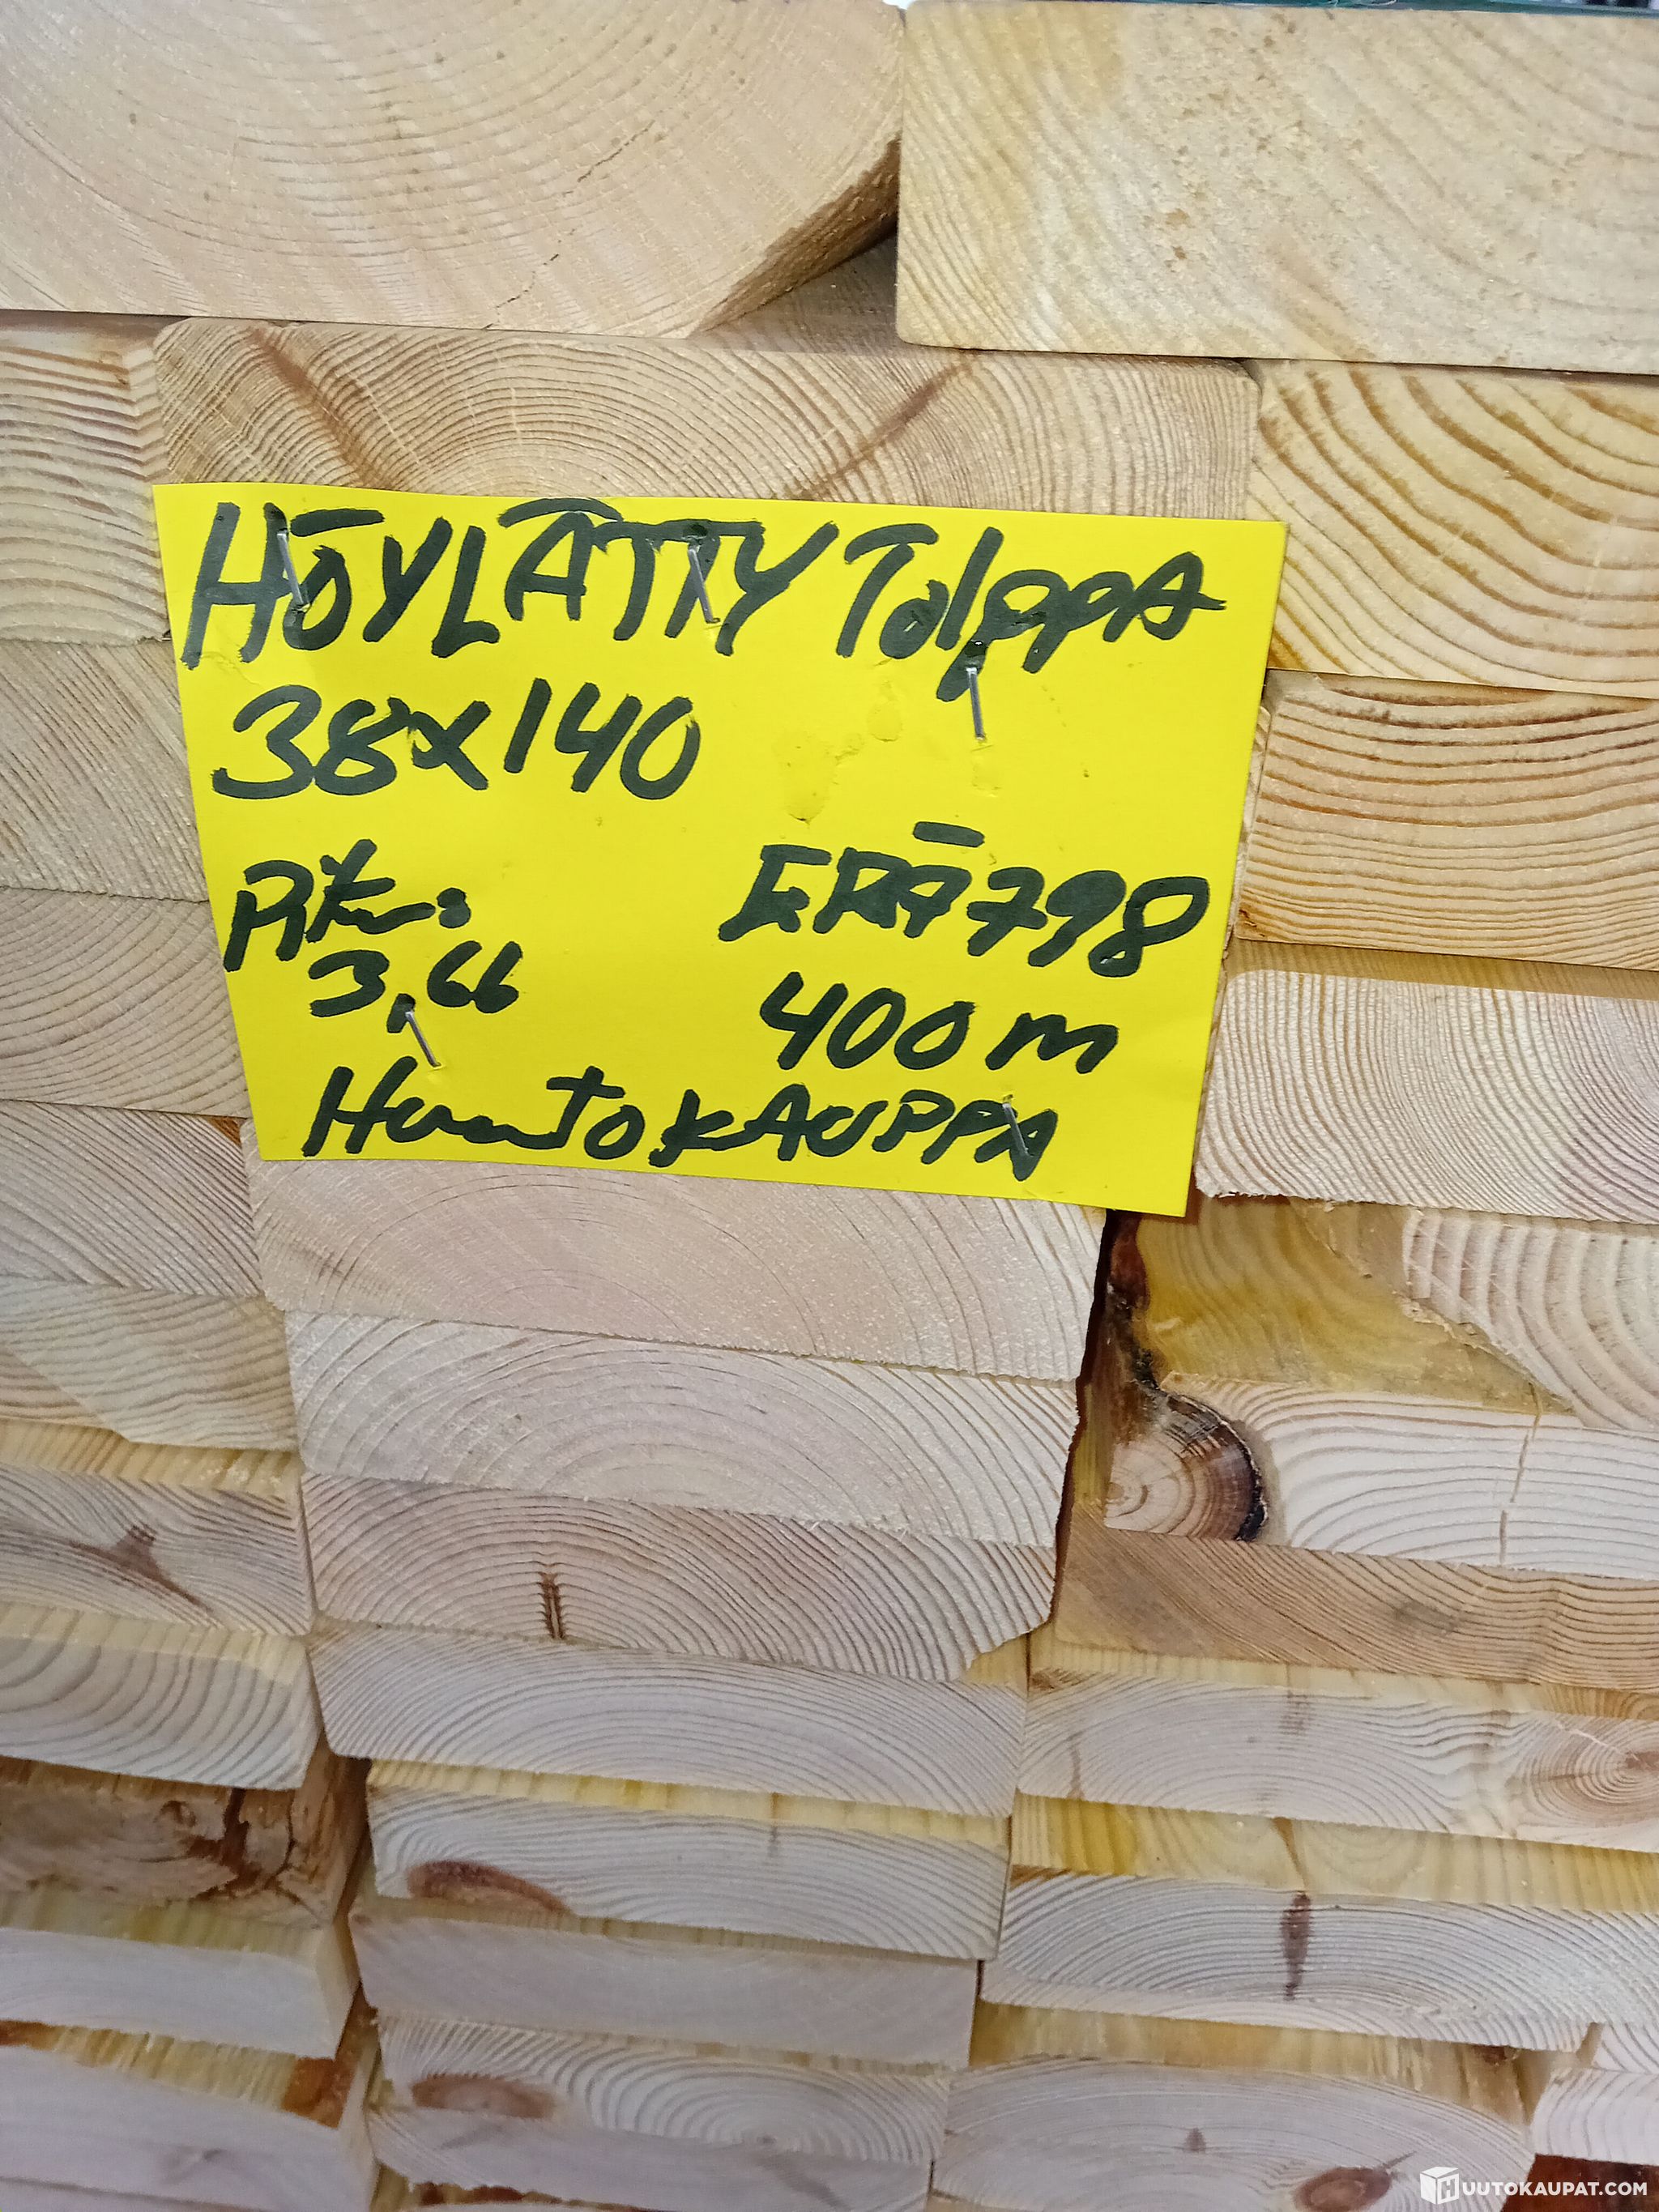 HÖYLÄTTY TolppA
38x140
Pit:
ERÄ 798
3,66
400 m
HuutokAUPPA
HUUTOKAUPAT.COM